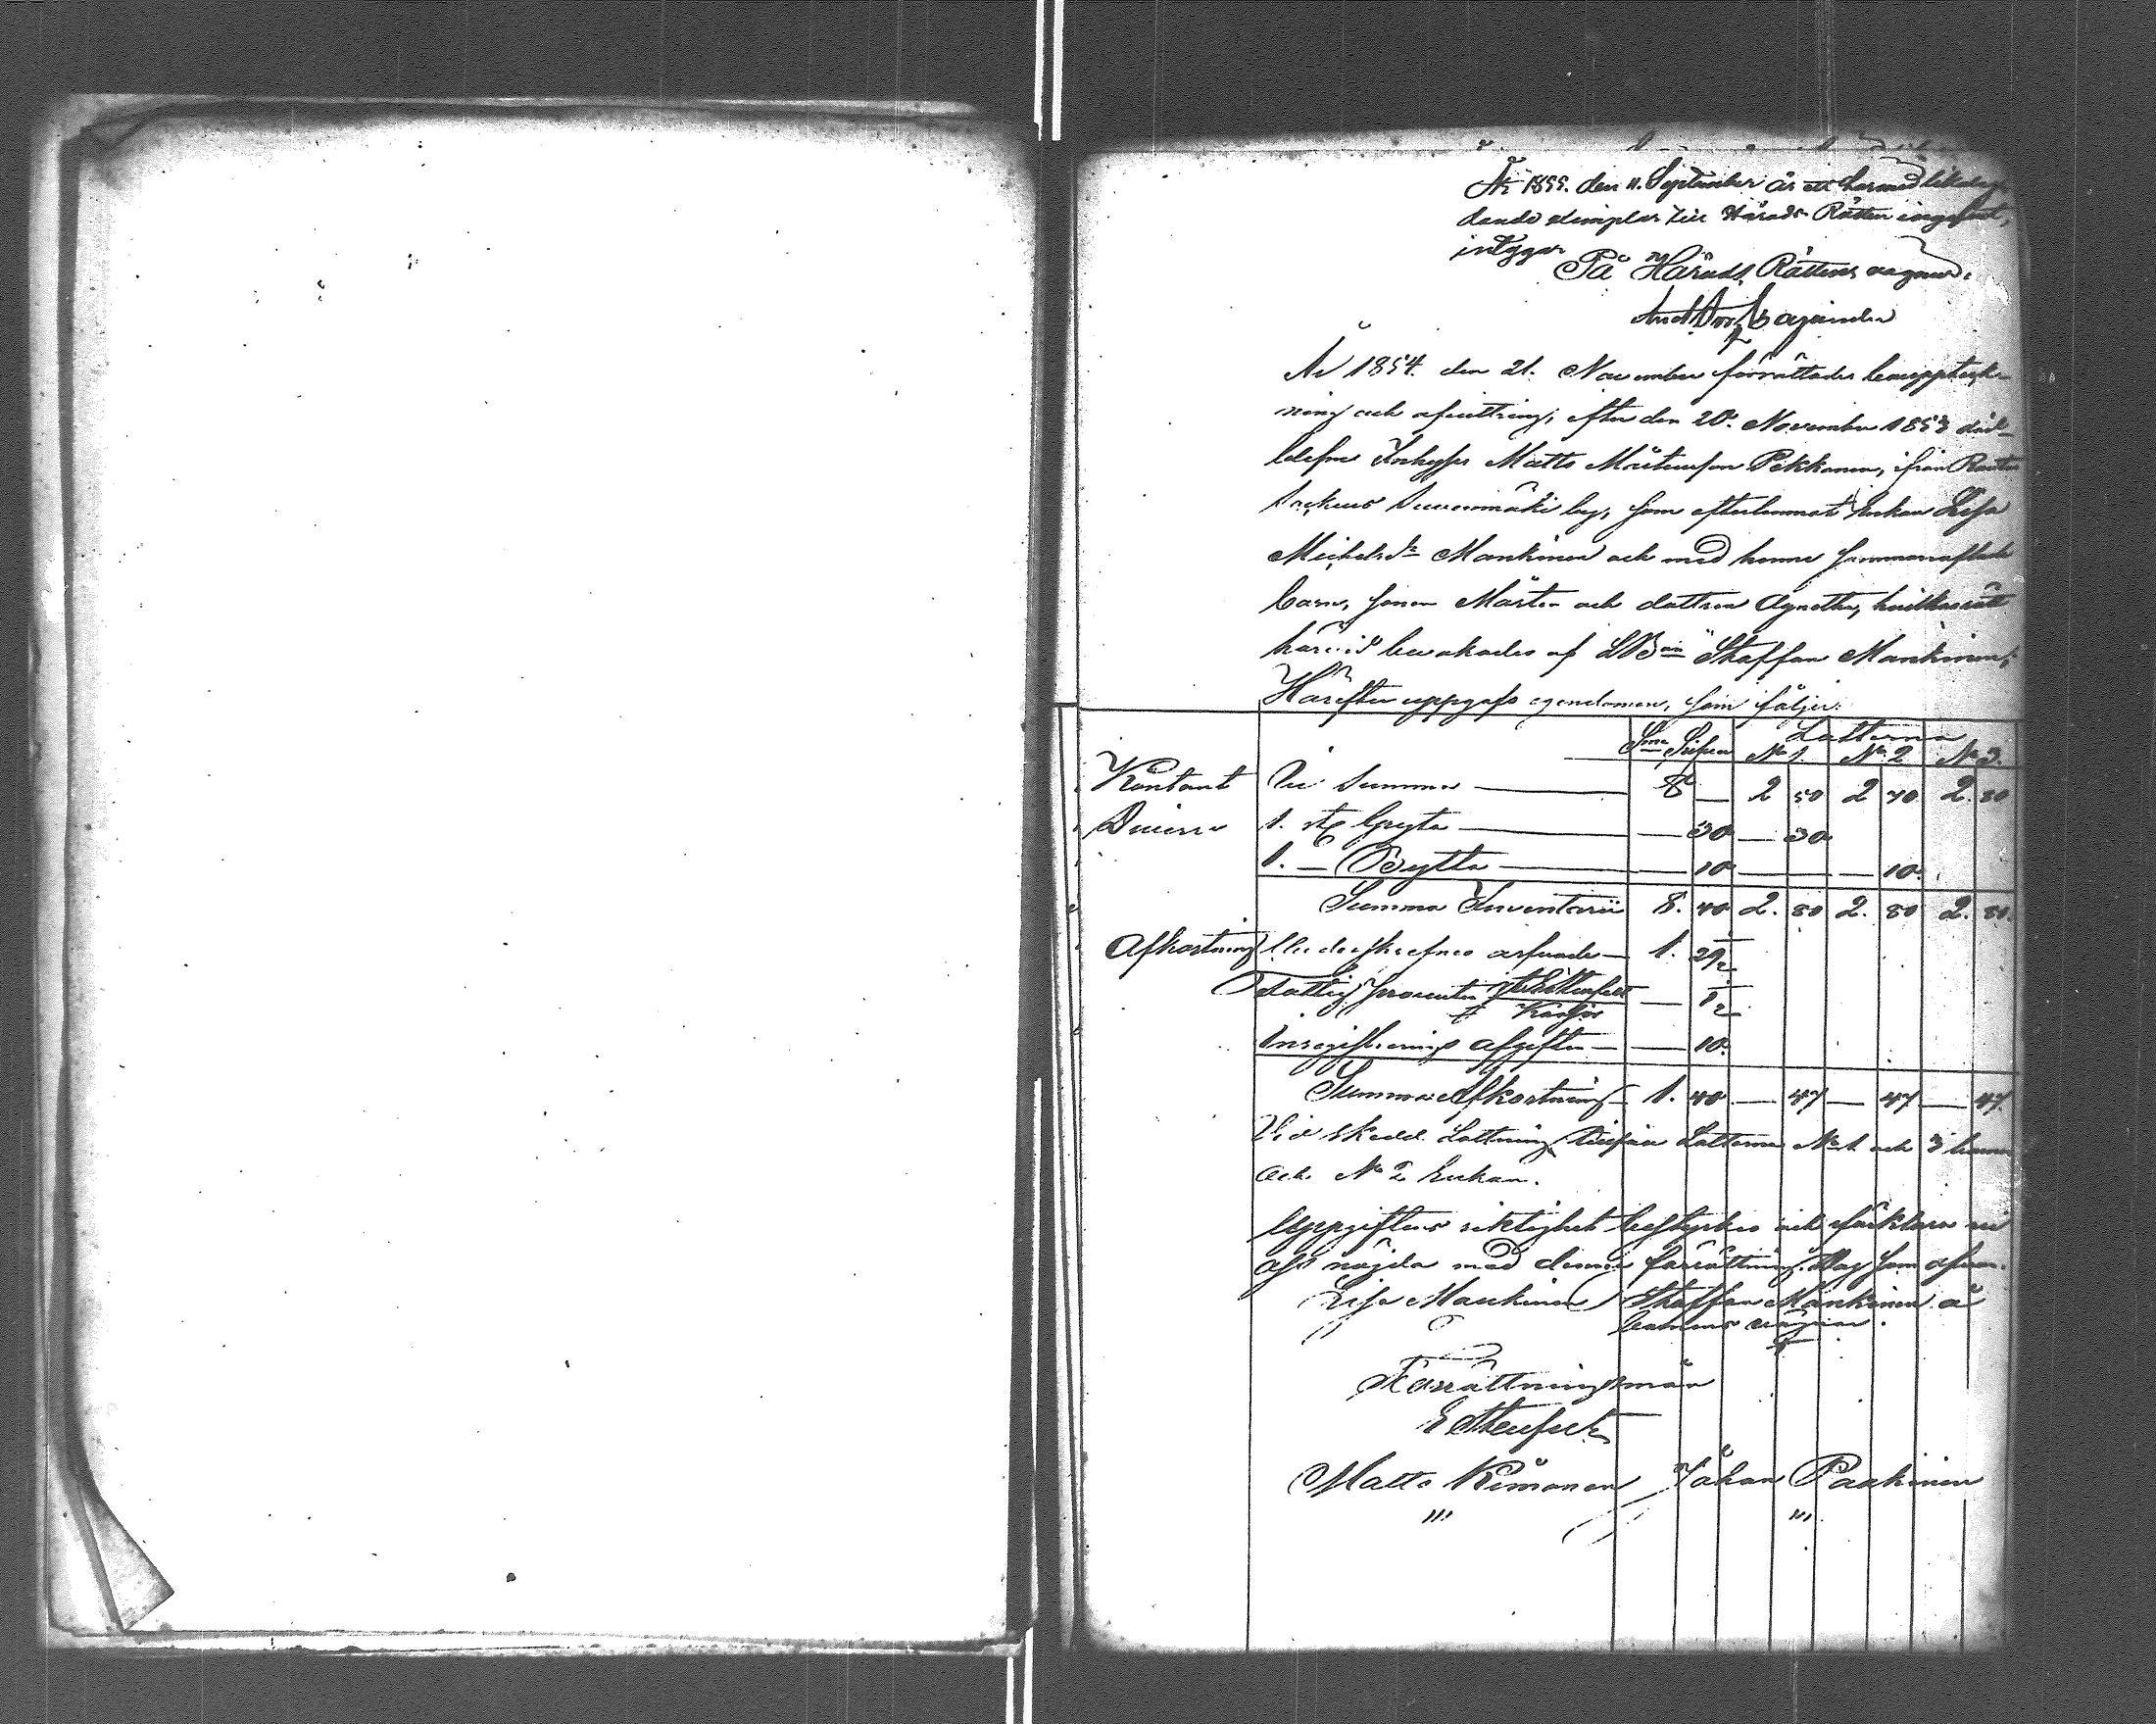 År 1855. den 11. September är ett härmed likaly-
dande exemplar till Härads Rätten ingifvet,
intygar
På Härads Rättens vägnar.
År 1854. den 21. November förrättades bouppteck-
ning och afvittring, efter den 20. November 1853 död-
blefne Inhyses Matts Mårtensson Pekkanen, ifrån Rautus
Sockens by, som efterlemnat Enkan Lisa
Michelsdr Mankinen och med henne sammanaflade
barn, sonen Mårten och dottren Agnetha, hvilkas rätt
härvid bevakades af Staffan Mankinen;
Härefter uppgafs egendomen, som följer:
Sma Silfver Lotterna
No 1. No 2 No 3.
Kontant En Summa 8 — 2 50 2 70 2. 80
Diverse 1. st Gryta — 30 — 30
1. — Bytta — 10 — 10
Summa Inventarii 8. 40 2. 80 2. 80 2. 80
Afkortning arfvode 1. 29
Fattig procenten — 1/2
Inregistrerings afgiften — 10.
Summa Afkortning 1. 40 — 47 — 47 — 47
Vid skedd Lottning tillföll Lotterna No 1 och 3 barnen
och No 2 Enkan.
Uppgiftens riktighet bestyrkes och förklara vi
oss nöjda med denna förrättning. Dag som ofvan.
Lisa Mankinen Staffan Mankinen å
barnens vägnar.
Förrättningsmän
Matts Kimonen Johan Paakinen